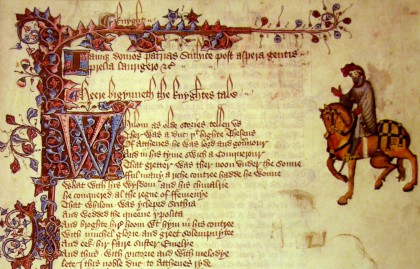 Knyght
Iamque domos patrias Scithice post aspera gentis
prelia laurigero &c
Heere bigynneth the knyghtes tale
Whilom as olde stories tellen us
Ther was a duc þt highte Theseus
Of Atthenes he was lord and governour
And in his tyme swich a Conquerour
That gretter was ther noon under the sonne
fful many a riche contree hadde he wonne
What with his wysdom and his chivalrie
he conquered al the regne of ffemenye
That whilom was ycleped Scithia
And wedded the queene ypolita
And broghte hire hoom with hym in his contree
With muchel glorie and greet solempnytee
And eek hir faire suster Emelye
And thus with victorie and with melodye
lete I this noble duc to Atthenes ryde